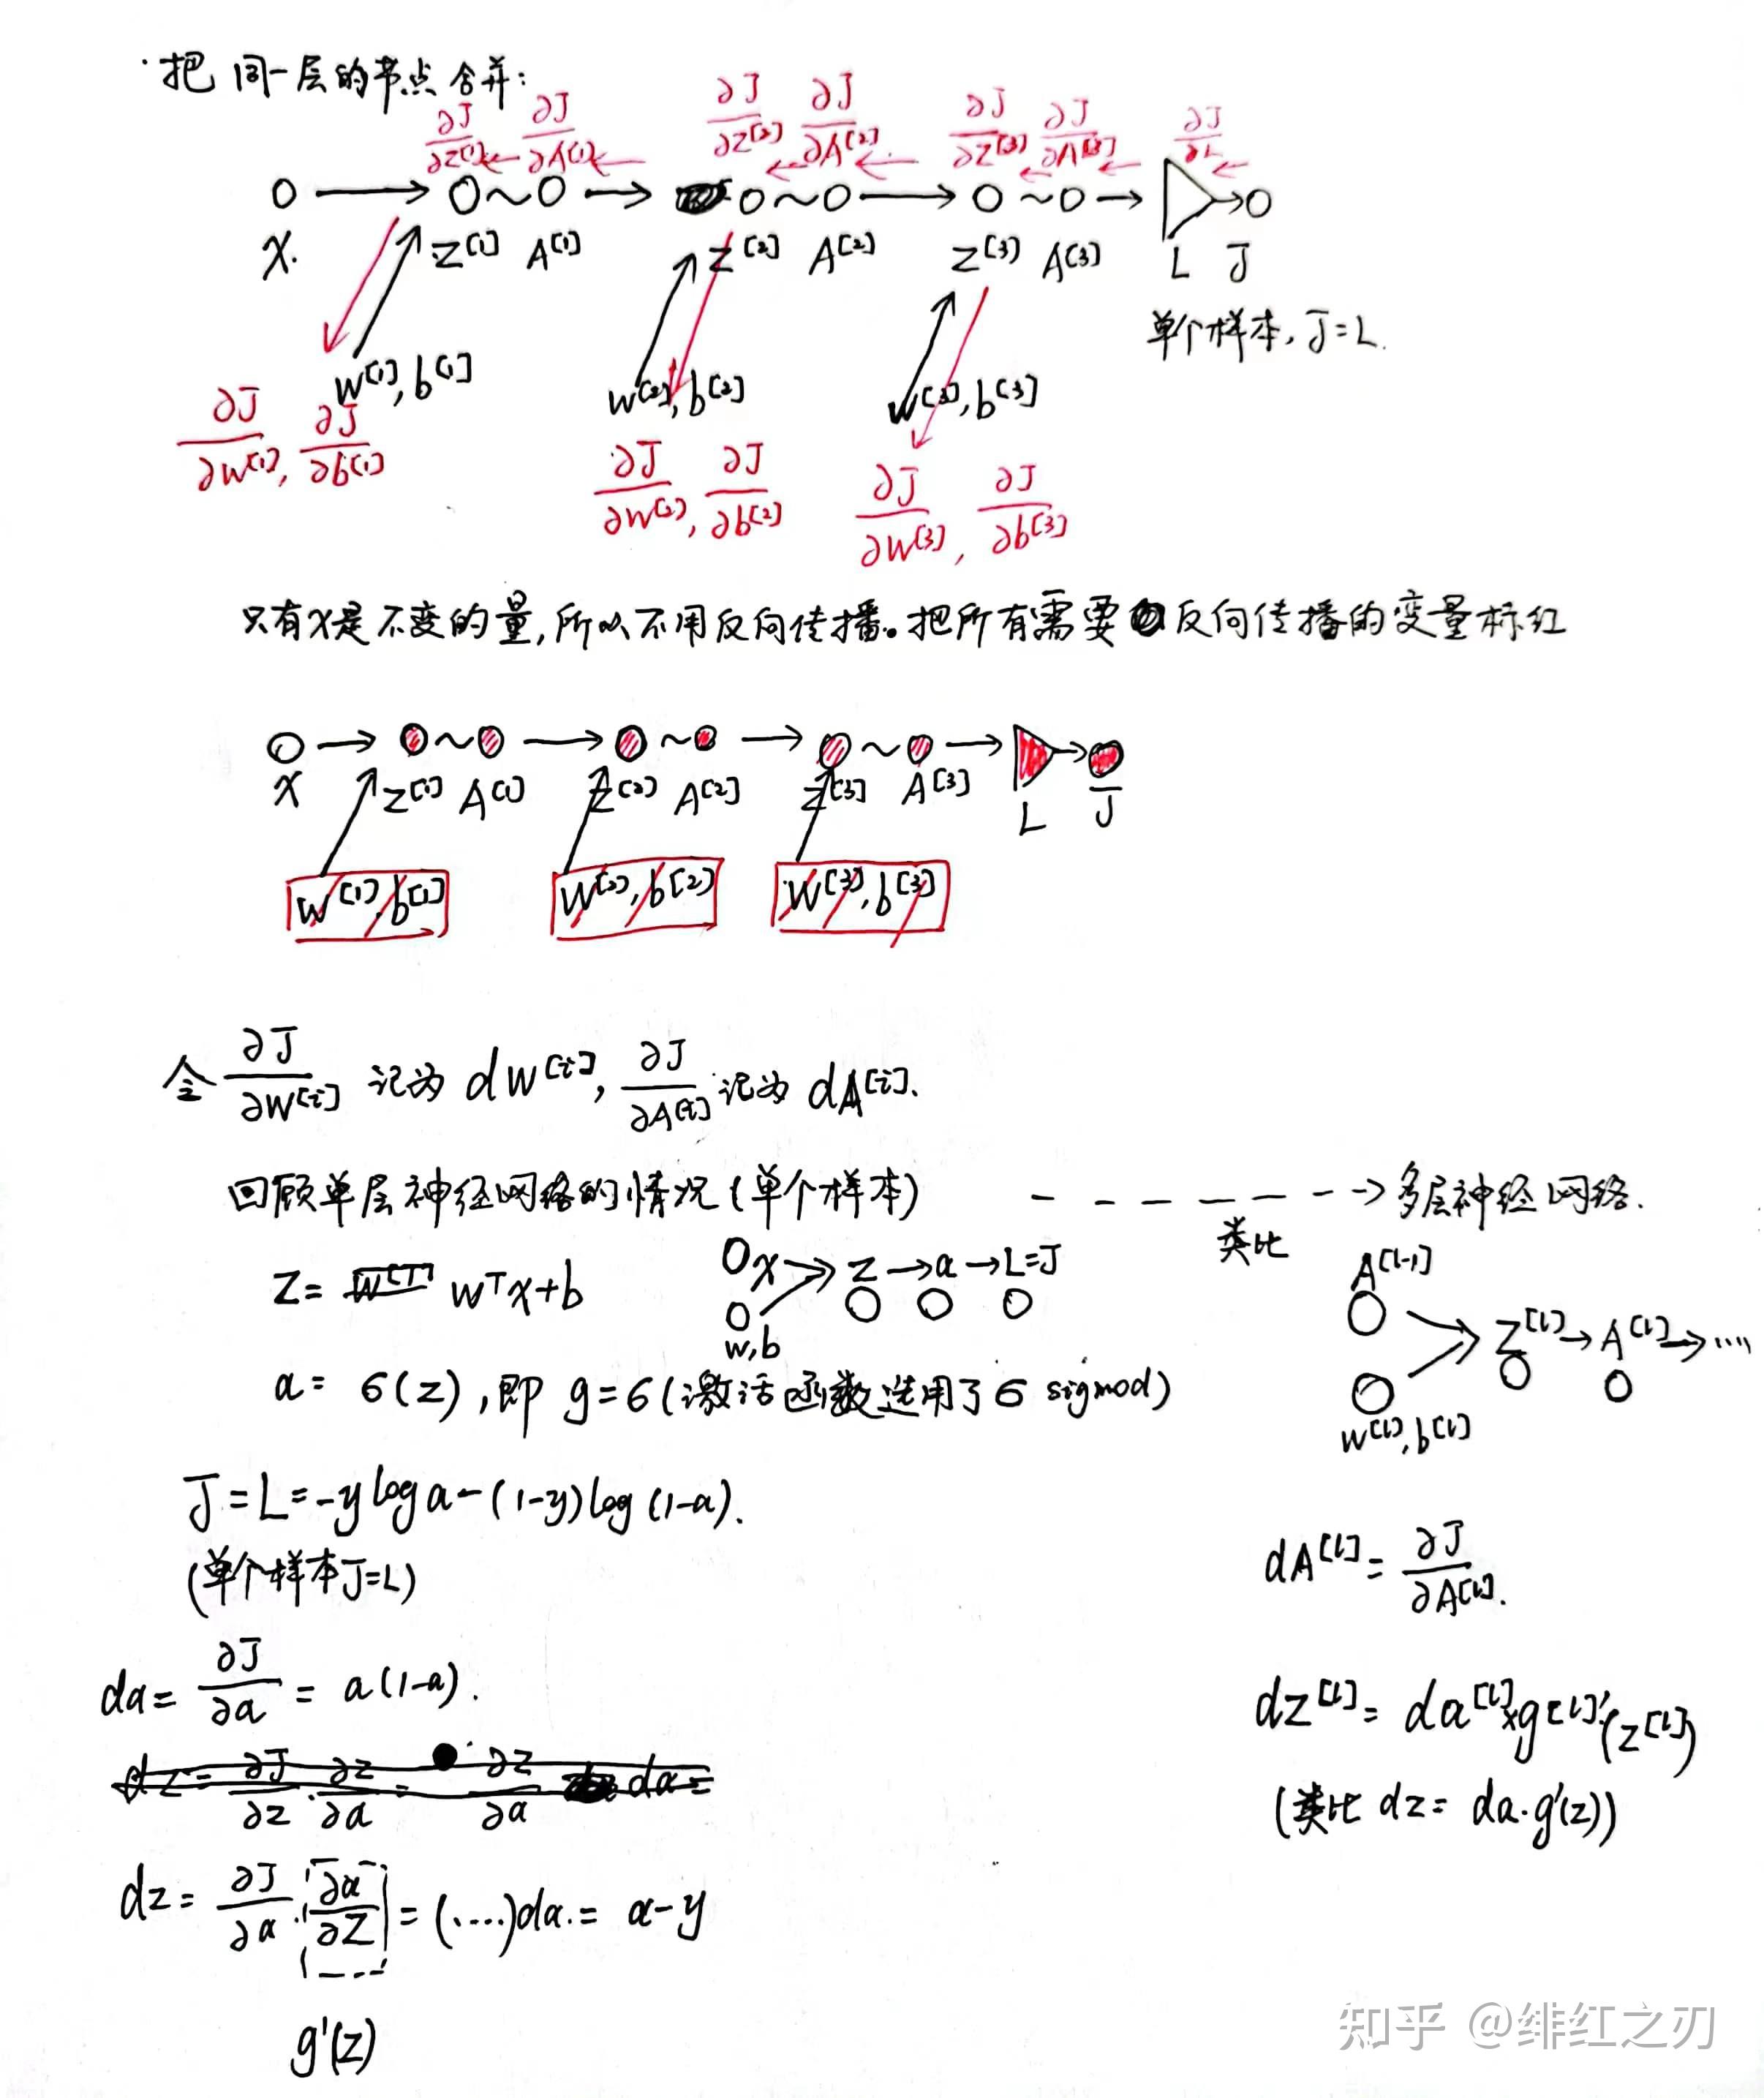 ·把同一层的节点合并:
∂J/∂Z[1] ∂J/∂A[1] ∂J/∂Z[2] ∂J/∂A[2] ∂J/∂Z[3] ∂J/∂A[3] ∂J/∂L
X. Z[1] A[1] Z[2] A[2] Z[3] A[3] L J
单个样本, J=L.
W[1], b[1] W[2], b[2] W[3], b[3]
∂J/∂W[1], ∂J/∂b[1] ∂J/∂W[2], ∂J/∂b[2] ∂J/∂W[3], ∂J/∂b[3]
只有X是不变的量,所以不用反向传播。把所有需要反向传播的变量标红
X Z[1] A[1] Z[2] A[2] Z[3] A[3] L J
W[1], b[1] W[2], b[2] W[3], b[3]
令 ∂J/∂W[i] 记为 dW[i], ∂J/∂A[i] 记为 dA[i].
回顾单层神经网络的情况(单个样本) - - - - - - -> 多层神经网络.
类比
Z= W[T] wTx+b
x → z → a → L=J
w,b
A[l-1]
Z[l] → A[l] → ....
W[l], b[l]
a= σ(z), 即 g=σ(激活函数选用了σ sigmod)
J=L=-y log a-(1-y)log(1-a).
(单个样本J=L)
dA[l]= ∂J/∂A[l].
da= ∂J/∂a = a(1-a).
dz[l]= da[l]×g[l]'(z[l])
dz= ∂J/∂z · ∂z/∂a = ∂z/∂a da=
(类比 dz= da·g'(z))
dz= ∂J/∂a · ∂a/∂z = (....)da.= a-y
g'(z)
知乎 @绯红之刃